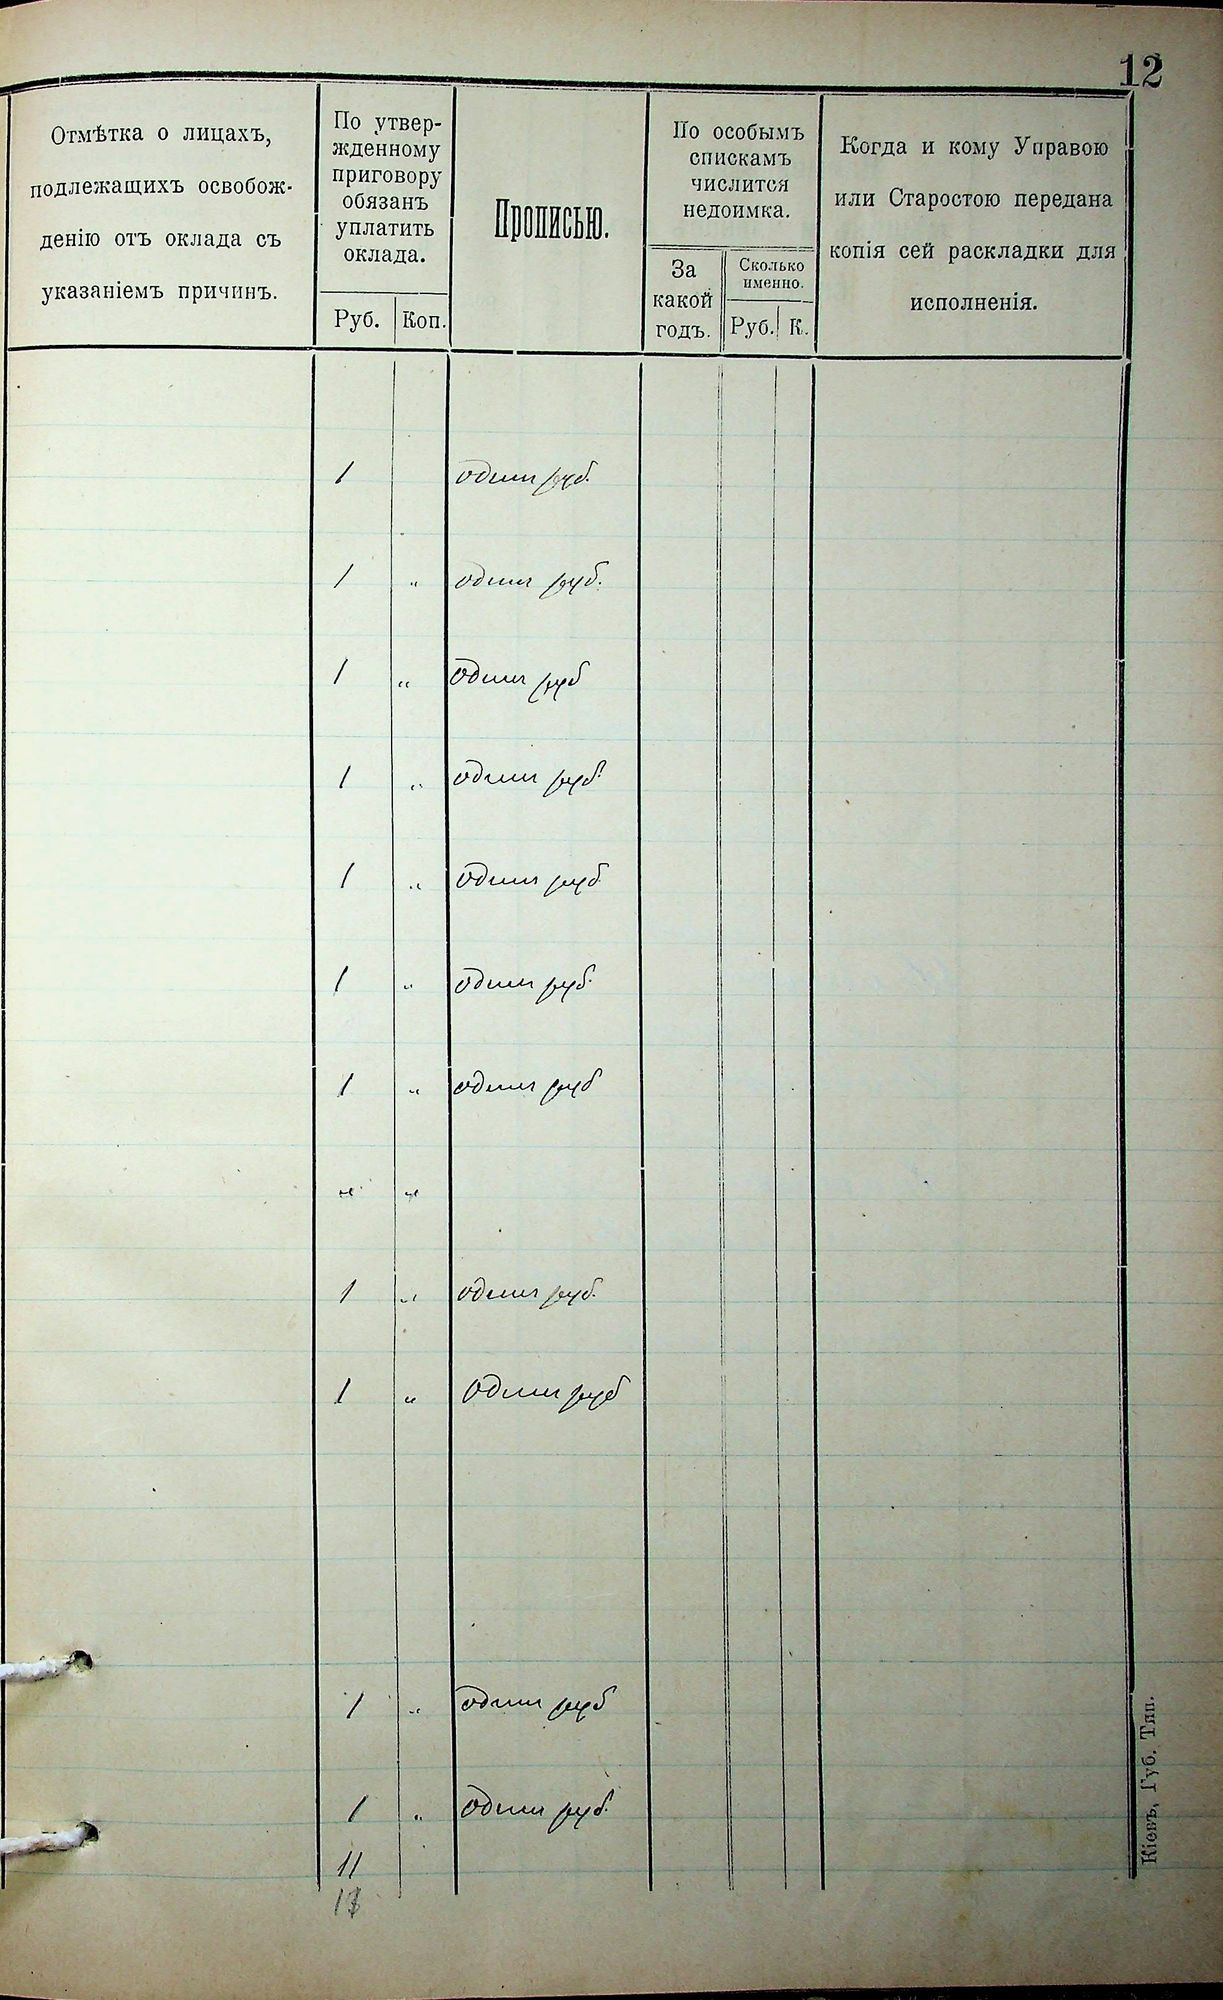 12
Отмѣтка о лицахъ,
подлежащихъ освобож-
денію отъ оклада съ
указаніемъ причинъ.
По утвер-
жденному
приговору
обязанъ
уплатить
оклада.
Руб. Коп.
Прописью.
По особымъ
спискамъ
числится
недоимка.
За
какой
годъ.
Сколько
именно.
Руб. К.
Когда и кому Управою
или Старостою передана
копія сей раскладки для
исполненія.
1 один руб.
1 " один руб.
1 " один руб
1 " один руб.
1 " один руб
1 " один руб.
1 " один руб
" "
1 " один руб.
1 " один руб
1 " один руб
1 " один руб.
11
Кіевъ, Губ. Тип.